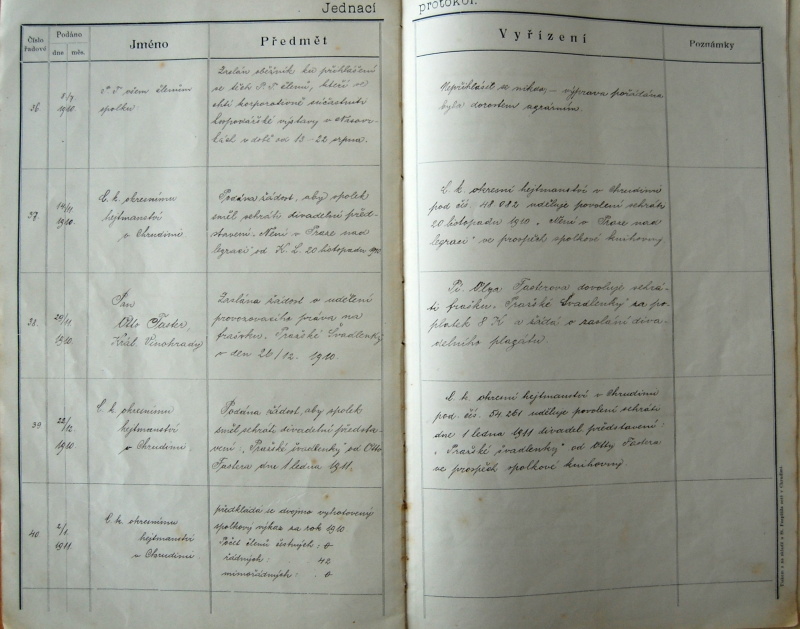 Jednací
protokol.
Číslo
řadové
Podáno
dne
měs.
Jméno
Předmět
Vyřízení
Poznámky
36
8/7
1910.
P. T. všem členům
spolku
Zaslán oběžník ku přihlášení
se těch P. T. členů, kteří se
chtí korporativně súčastniti
hospodářské výstavy v
v době od 13–22 srpna.
Nepřihlásil se nikdo, – výprava pořádána
byla dorostem agrárním.
37.
14/11
1910.
C. k. okresnímu
hejtmanství
v Chrudimi
Podána žádost, aby spolek
směl sehráti divadelní před-
stavení „Není v Praze nad
legraci“ od K. L. 20 listopadu 1910
C. k. okresní hejtmanství v Chrudimi
pod čís. 48 082 uděluje povolení sehráti
20 listopadu 1910 „Není v Praze nad
legraci“ ve prospěch spolkové knihovny
38.
20/11
1910.
Pan
Otto Faster
Král. Vinohrady
Zaslána žádost o udělení
provozovacího práva na
frašku „Pražské Švadlenky“
v den 26/12. 1910.
Pí. Olga Fasterova dovoluje sehrá-
ti frašku „Pražské Švadlenky za po-
platek 8 K a žádá o zaslání diva-
delního plagátu.
39
22/12
1910
C. k. okresnímu
hejtmanství
v Chrudimi.
Podána žádost, aby spolek
směl sehráti divadelní předsta-
vení: „Pražské švadlenky“ od Otto
Fastera dne 1 ledna 1911.
C. k. okresní hejtmanství v Chrudimi
pod. čís. 54 261 uděluje povolení sehráti
dne 1 ledna 1911 divadel. představení:
„Pražské švadlenky“ od Otty Fastera
ve prospěch spolkové knihovny.
40.
2/1.
1911.
C. k. okresnímu
hejtmanství
v Chrudimi.
předkládá se dvojmo vyhotovený
spolkový výkaz za rok 1910
Počet členů čestných: 0
řádných: 42
mimořádných: 0